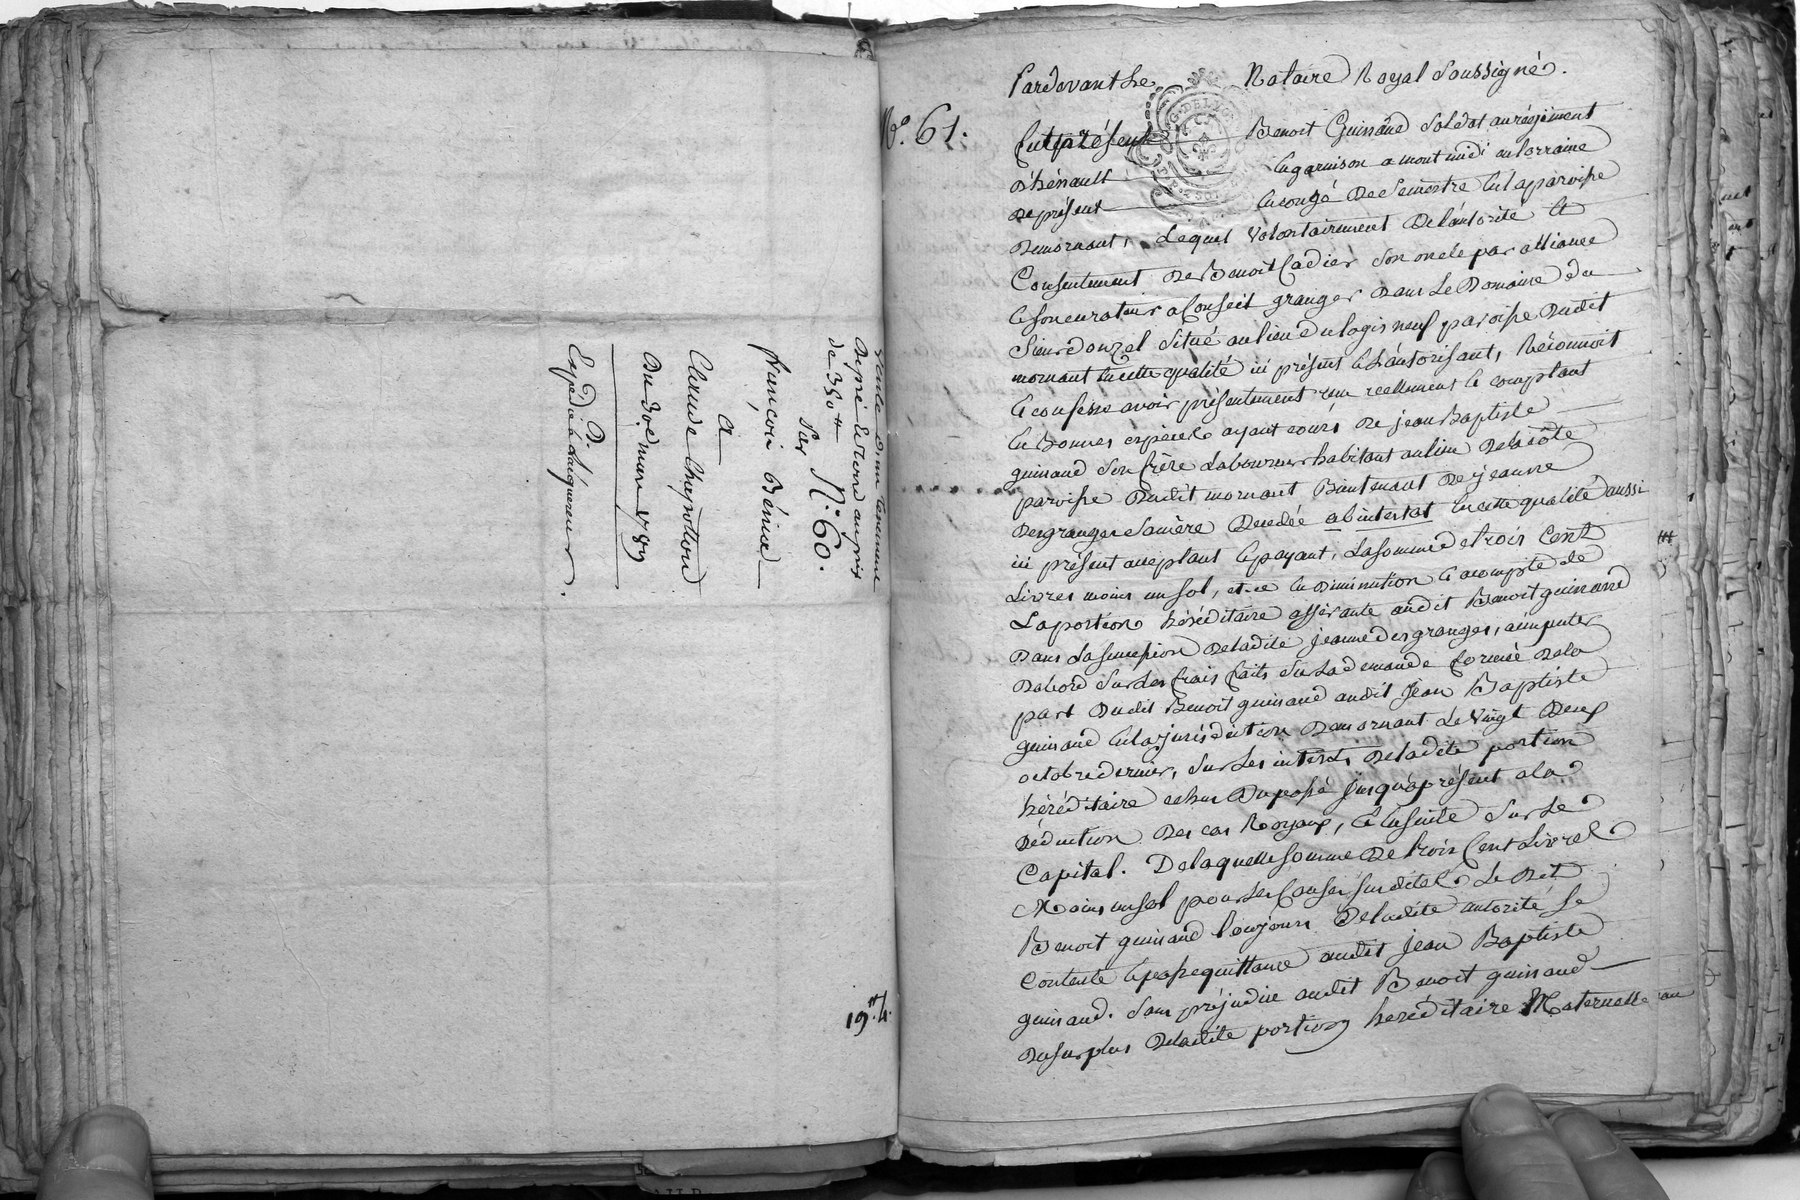 Vente d'un tenement
de pré et terre au prix
de 350 ₶
par N.° 60.
françois Bénière
A
Claude Chapotton
Du 30e. mars 1789
Expédié à l'acquereur.
19. ₶ 4.
N.° 61.
Pardevant Le Notaire Royal Soussigné.
fut présent Benoit Guinand Soldat au régiment
d'hénault en garnison a montmidi en Lorraine
de présent en congé De Semestre en la paroisse
De mornant, Lequel volontairement De l'autorité et
Consentement De Benoit Cadier Son oncle par alliance
et son curateur a Conseil granger Dans Le Domaine du
Sieur donzel Situé au lieu du logis neuf paroisse Dudit
mornant en cette qualité ici présent et L'autorisant, Reconnoit
et confesse avoir présentement reçu reellement et comptant
En Bonnes espèces ayant cours De jean Baptiste
guinand Son frère Laboureur habitant au lieu De la côte
paroisse Dudit mornant Bientenant De jeanne
Desgranges Sa mère Decedée ab intestat en cette qualité aussi
ici présent acceptant et payant, La somme de trois Cent
Livres moins un sol, et ce en Diminution et acompte de
La portion héréditaire afférante audit Benoit guinand
Dans La succession De ladite jeanne desgranges, a imputer
Dabord Sur Les frais faits Sur La demande formée De la
part Dudit Benoit guinand audit Jean Baptiste
guinand en la jurisdiction De mornant Le vingt Deux
octobre dernier, Sur Les interets De ladite portion
héréditaire echus Du passé jusqu'a présent a la
Déduction Des cas Royaux, et Ensuite Sur Le
Capital. De laquelle somme De trois Cent Livres
Moins un sol pour Les Causes Susdites Le Dit
Benoit guinand toujours De ladite autorité Se
Contente et passe quittance audit Jean Baptiste
guinand. Sans préjudice audit Benoit guinand
Du surplus De ladite portion héréditaire Maternelle au